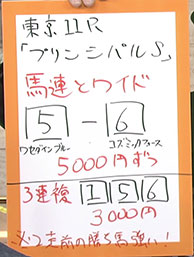 東京11R
「プリンシパルS」
馬連とワイド
5－6
ワセダインブルー コズミックフォース
5000円ずつ
3連複 1 5 6
3000円
※2走前の勝ち馬強い!